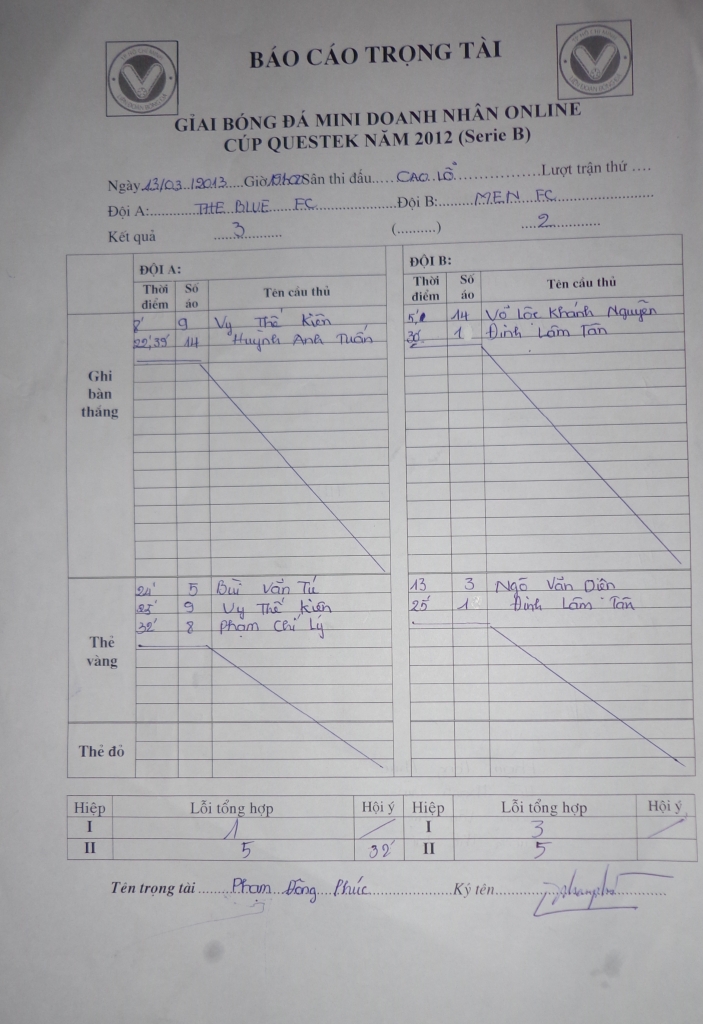 BÁO CÁO TRỌNG TÀI
GIẢI BÓNG ĐÁ MINI DOANH NHÂN ONLINE
CÚP QUESTEK NĂM 2012 (Serie B)
Ngày 13/03/2013....Giờ Sân thi đấu.....CAO LỖ....................Lượt trận thứ ....
Đội A:..........THE BLUE FC..................Đội B:..........M.E.N FC.....................
Kết quả ......3......... (..........) ....2............
ĐỘI A: ĐỘI B:
Thời điểm Số áo Tên cầu thủ Thời điểm Số áo Tên cầu thủ
Ghi bàn thắng
9 Vy Thế Kiên 14 Võ Lộc Khánh Nguyễn
22', 39' 14 Huỳnh Anh Tuấn 1 Đinh Lâm Tân
Thẻ vàng
24' 5 Bùi Văn Tú 13 3 Ngô Văn Diên
9 Vy Thế Kiên 25' 1 Đinh Lâm Tân
32' 8 Phạm Chí Lý
Thẻ đỏ
Hiệp Lỗi tổng hợp Hội ý Hiệp Lỗi tổng hợp Hội ý
I 1 I 3
II 5 32' II 5
Tên trọng tài ........Phạm Đông Phúc........................Ký tên